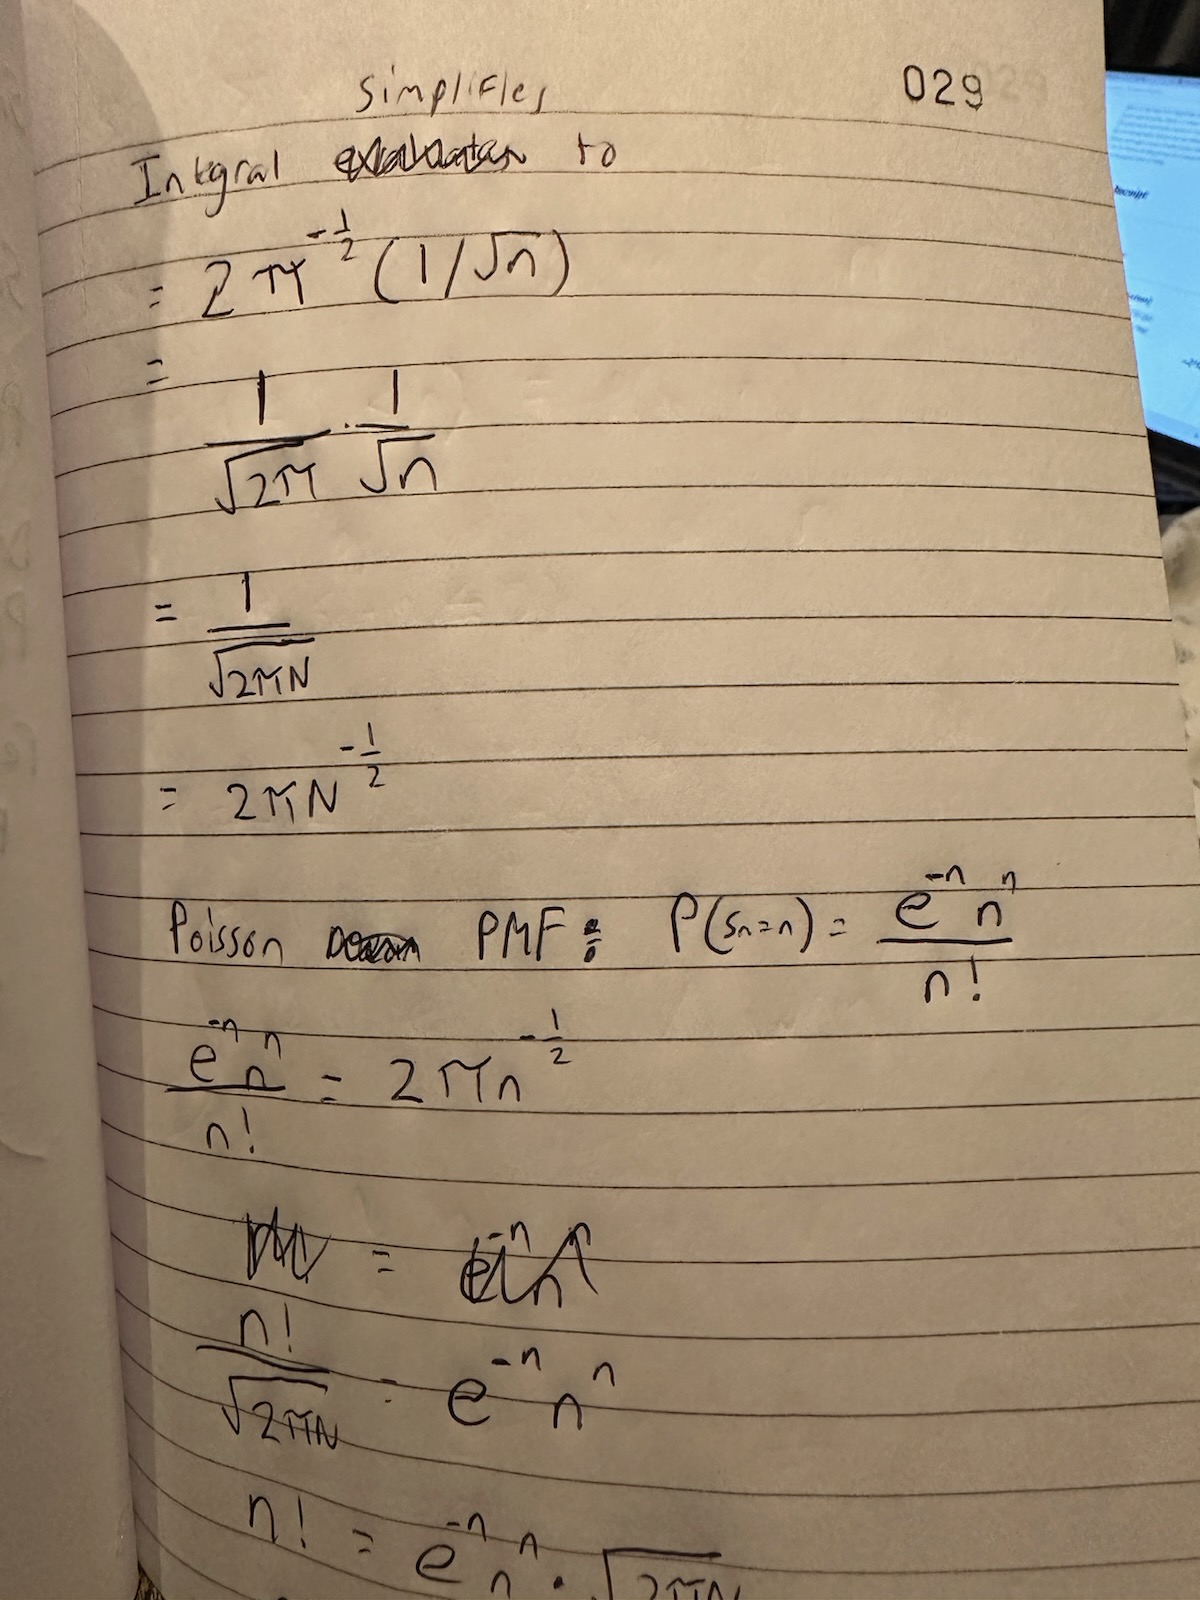 029
Simplifies
Integral to
= 2π^{-1/2} (1/√n)
=
1/√2π · 1/√n
= 1/√2πN
= 2πN^{-1/2}
Poisson PMF: P(Sn=n) = e^{-n} n^n / n!
e^{-n} n^n / n! = 2πn^{-1/2}
= e^{-n} n^n
n! / √2πN = e^{-n} n^n
n! = e^{-n} n^n · √2πN